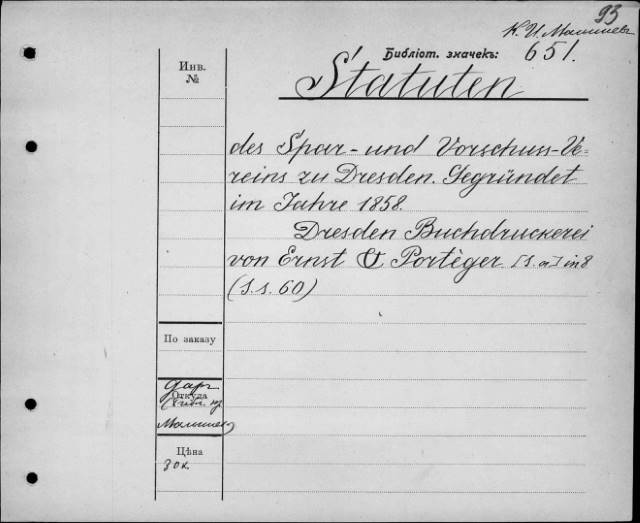 93
К. И. Малышевъ
Библіот. значекъ: 651.
Инв.
№
Statuten
des Spar- und Vorschuss-Ve-
reins zu Dresden. Gegründet
im Jahre 1858.
Dresden Buchdruckerei
von Ernst & Portèger [s. a.] in 8
(S.s. 60)
По заказу
Даръ
Откуда
Малышев
Цѣна
30 к.